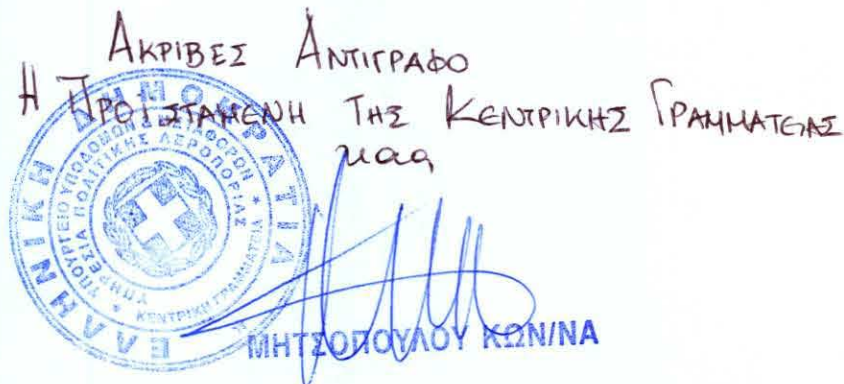 ΑΚΡΙΒΕΣ ΑΝΤΙΓΡΑΦΟ
Η ΠΡΟΪΣΤΑΜΕΝΗ ΤΗΣ ΚΕΝΤΡΙΚΗΣ ΓΡΑΜΜΑΤΕΙΑΣ
ΕΛΛΗΝΙΚΗ ΔΗΜΟΚΡΑΤΙΑ
ΥΠΟΥΡΓΕΙΟ ΥΠΟΔΟΜΩΝ ΜΕΤΑΦΟΡΩΝ
ΥΠΗΡΕΣΙΑ ΠΟΛΙΤΙΚΗΣ ΑΕΡΟΠΟΡΙΑΣ
ΚΕΝΤΡΙΚΗ ΓΡΑΜΜΑΤΕΙΑ
ΜΗΤΣΟΠΟΥΛΟΥ ΚΩΝ/ΝΑ